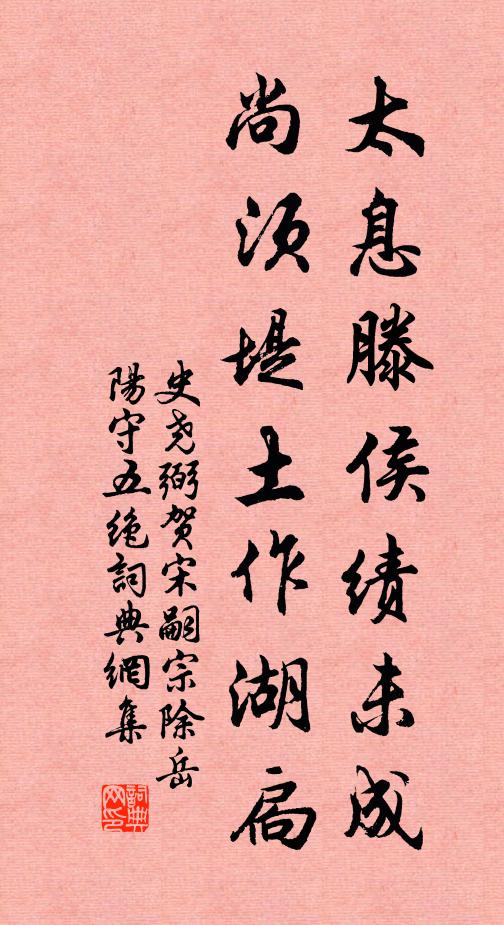 太息滕侯绩未成
尚须堤土作湖扁
史尧弼贺宋嗣宗除岳
陽守五绝詞典網集
詞典
网印